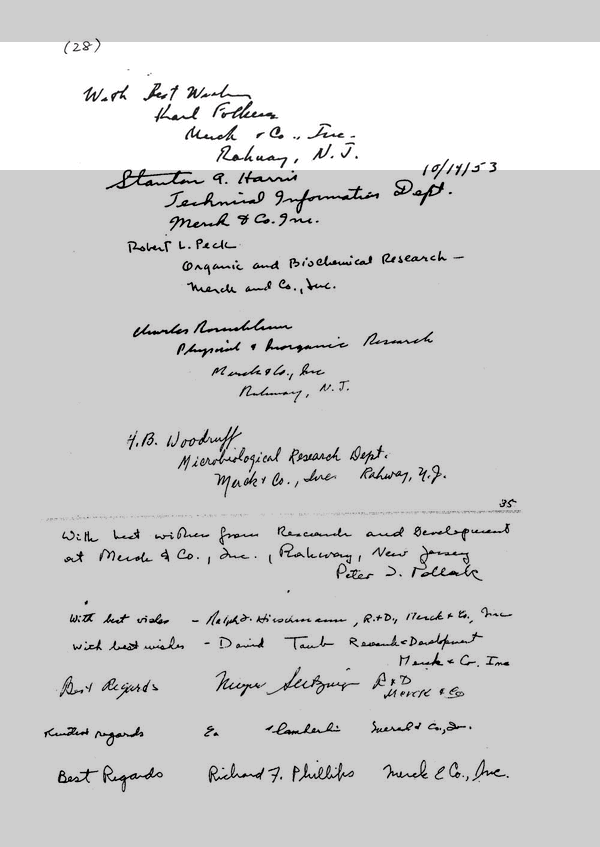 (28)
With Best Wishes
Karl Folkers
Merck & Co., Inc.
Rahway, N.J.
10/14/53
Stanton A. Harris
Technical Information Dept.
Merck & Co. Inc.
Robert L. Peck
Organic and Biochemical Research —
Merck and Co., Inc.
Charles Rosenblum
Physical & Inorganic Research
Merck & Co., Inc
Rahway, N.J.
H.B. Woodruff
Microbiological Research Dept.
Merck & Co., Inc. Rahway, N.J.
35
With best wishes from Research and Development
at Merck & Co., Inc., Rahway, New Jersey
Peter I. Pollak
With best wishes - Ralph F. Hirschmann, R.+D., Merck & Co., Inc
With best wishes - David Taub Research & Development
Merck & Co. Inc
Best Regards Meyer R+D
Merck & Co
Kindest regards Merck & Co., Inc.
Best Regards Richard F. Phillips Merck & Co., Inc.